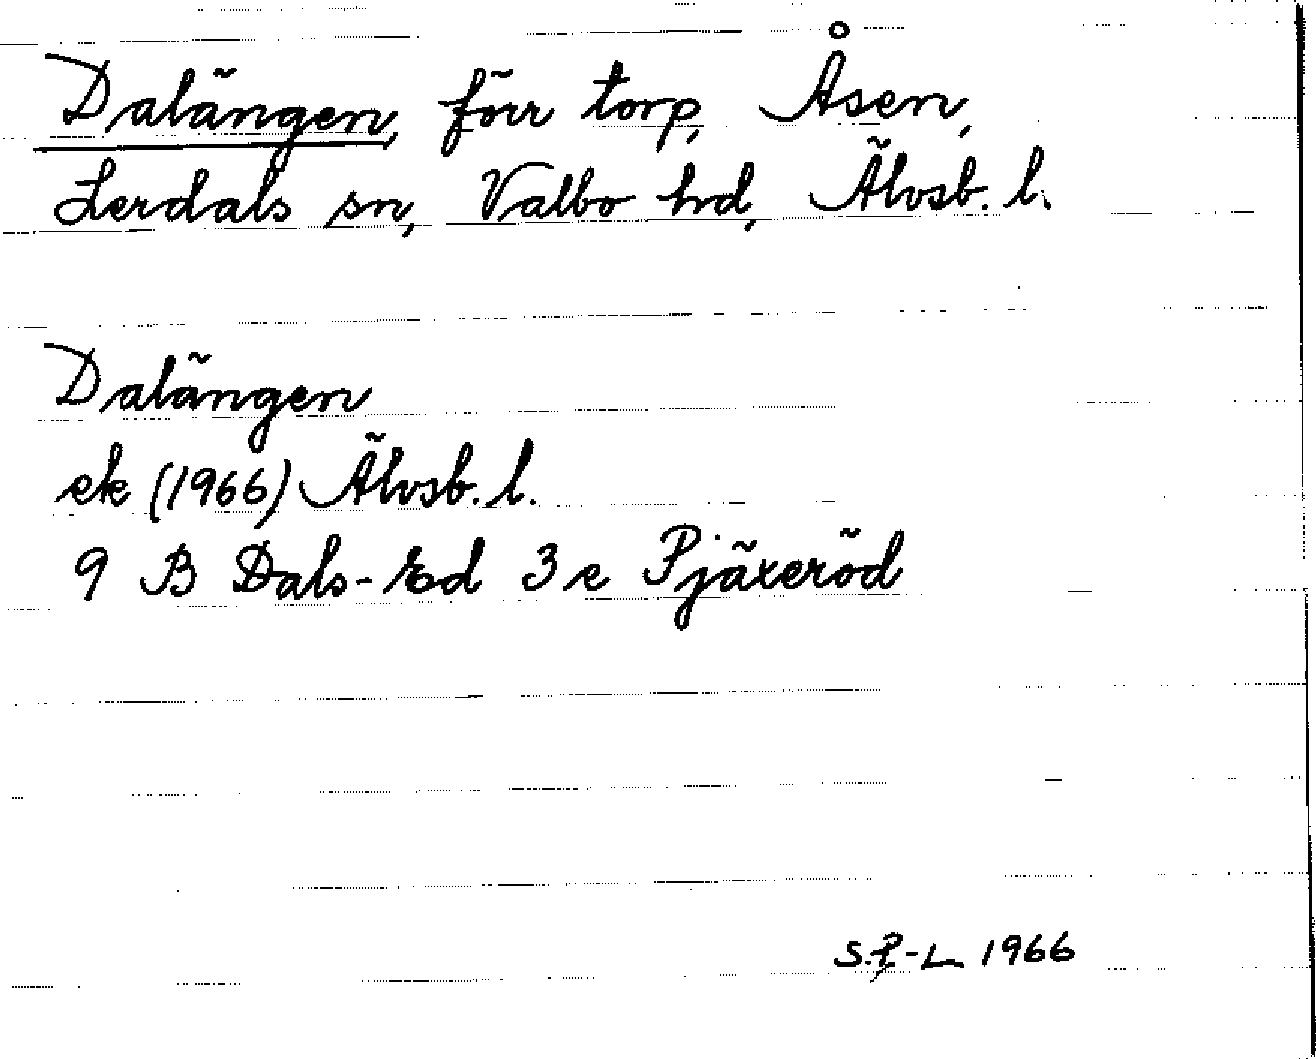 Dalängen, förr torp, Åsen,
Lerdals sn, Valbo hrd, Älvsb. l.
Dalängen
ek (1966) Älvsb. l.
9 B Dals-Ed 3 e Pjäxeröd
S.F-L 1966